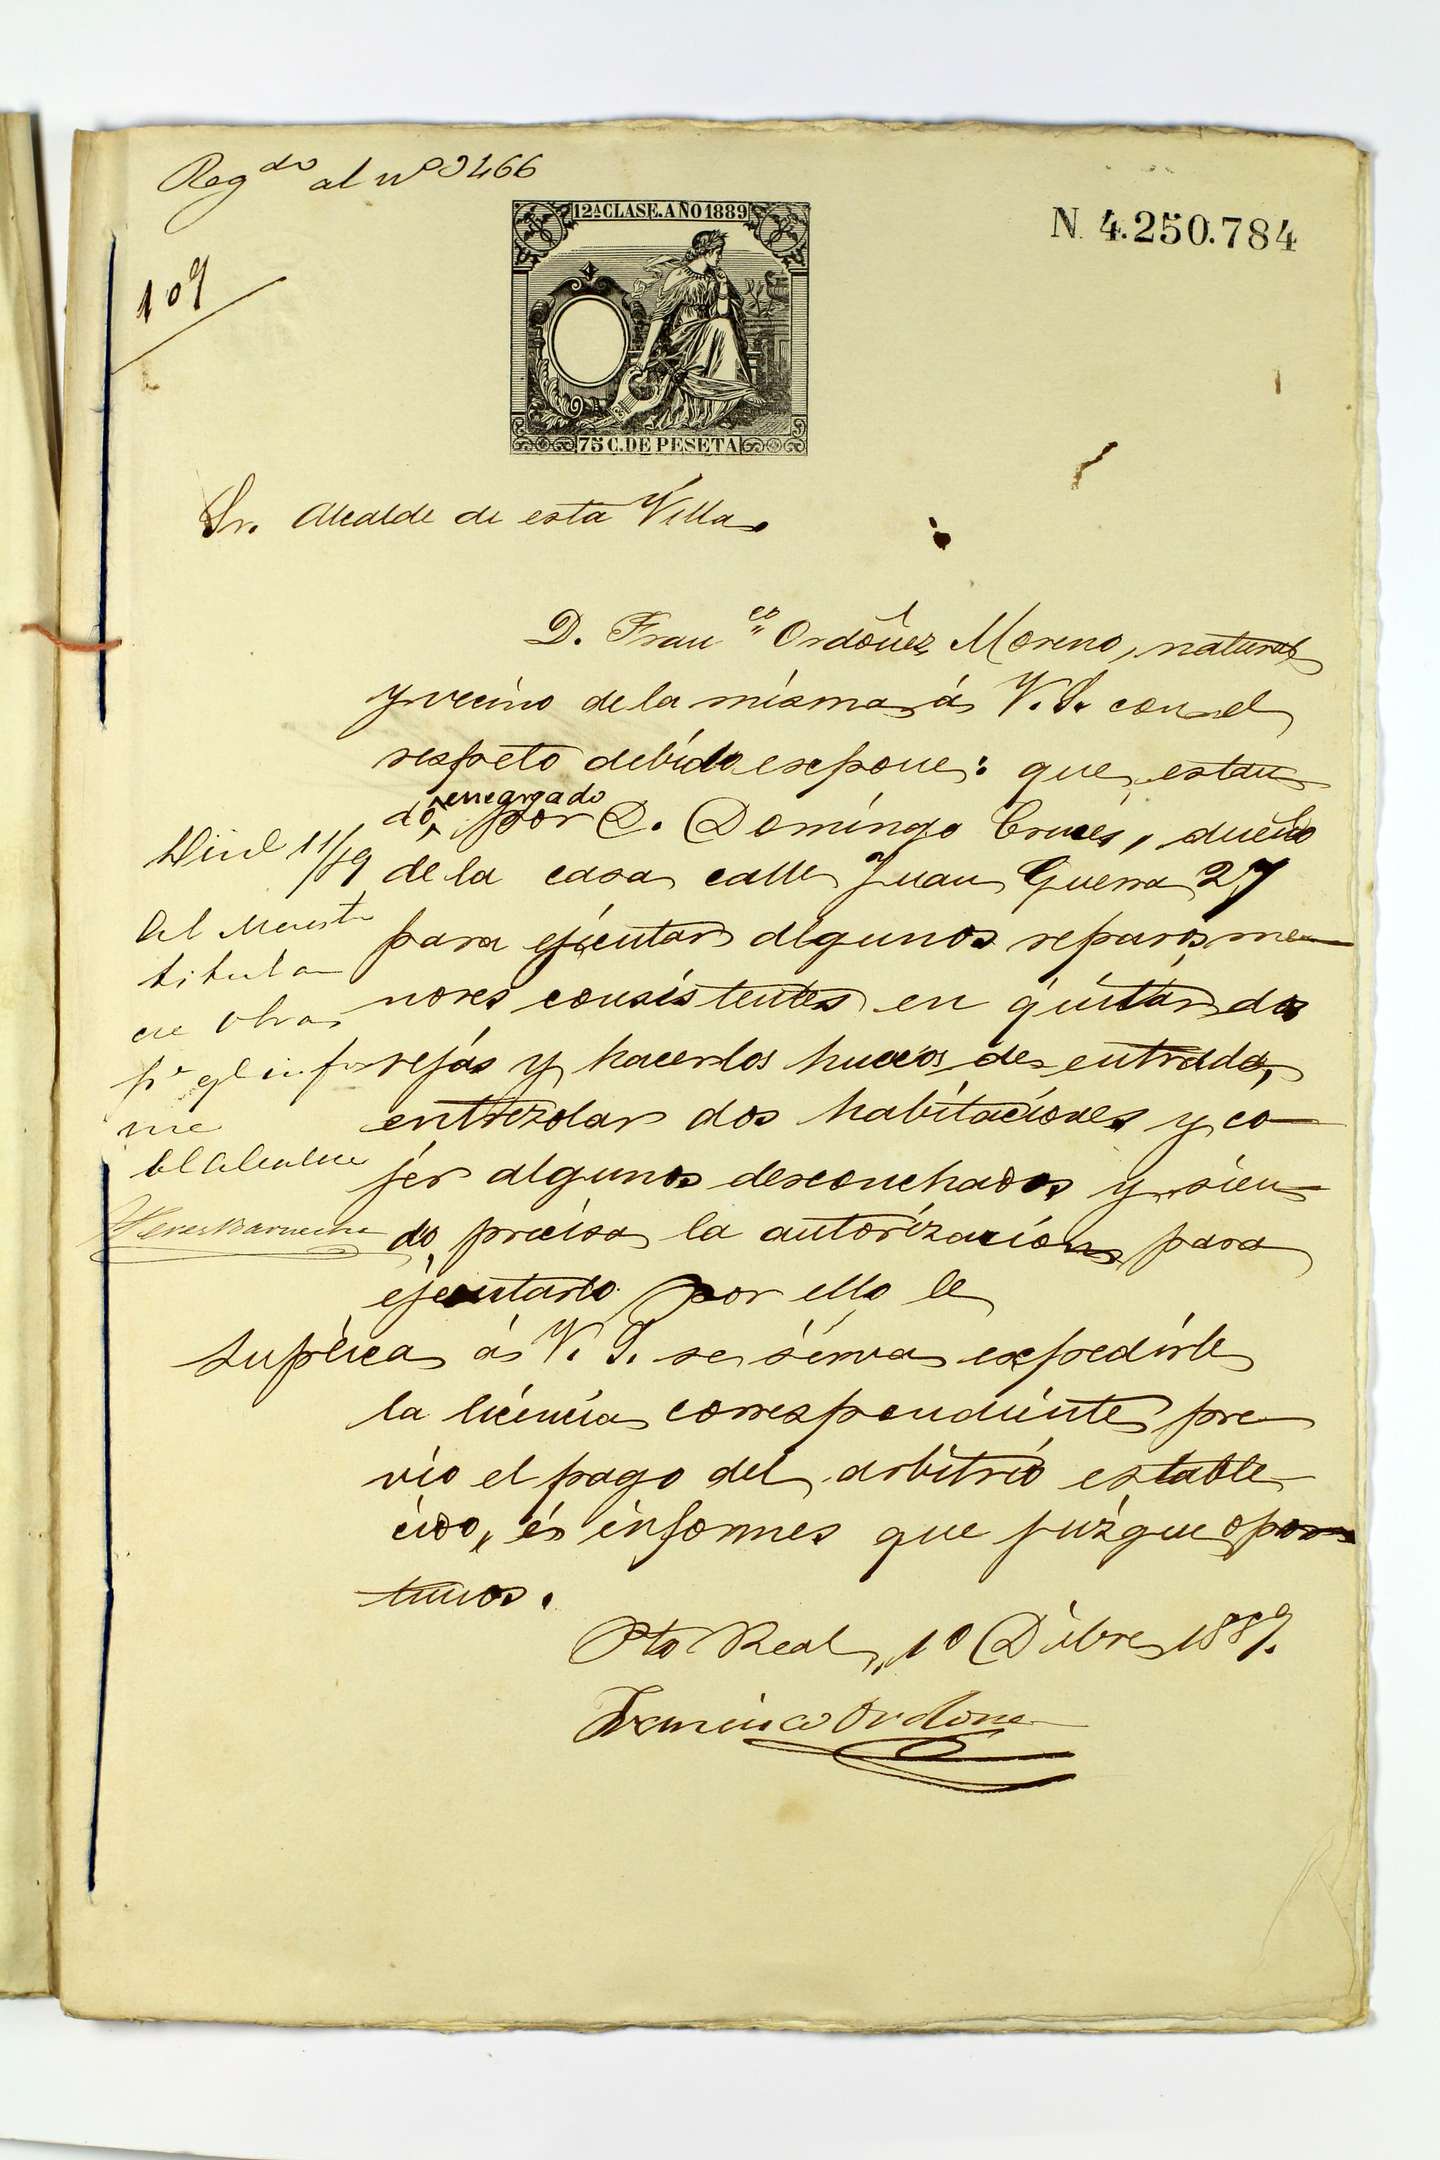 Reg.do al nº 3466
12ª CLASE. AÑO 1889
N. 4.250.784
109
75 C. DE PESETA
Sr. Alcalde de esta Villa.
D. Franco Ordoñez Moreno, natural
y vecino de la misma á V. S. con el
respeto debido expone: que estan
do encargado por D. Domingo Cruces, dueño
de la casa calle Juan Guerra 27
para ejecutar algunos reparos me
nores consistentes en quitar dos
rejas y hacerlos huecos de entrada,
entrezolar dos habitaciones y co-
jer algunos desconchados y sien-
do precisa la autorizacion para
ejecutarlo por ello le
suplica á V. S. se sirva expedirle
la licencia correspondiente pre
vio el pago del arbitrio estable
cido, é informes que juzgue opor
tunos.
Pto Real, 10 Dibre 1889.
Francisco Ordoñez
11/89
Al Maestro
titular
de obras
pa. qe. infor
me
El Alcalde